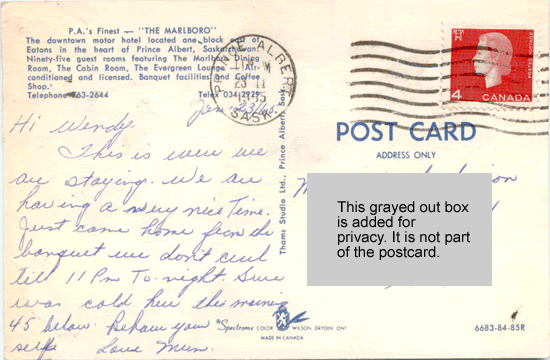 P.A.'s Finest — "THE MARLBORO"
The downtown motor hotel located one block east of
Eatons in the heart of Prince Albert, Saskatchewan.
Ninety-five guest rooms featuring The Marlboro Dining
Room, The Cabin Room, The Evergreen Lounge - Air-
conditioned and licensed. Banquet facilities and Coffee
Shop.
Telephone 763-2644 Telex 034-2929
PRINCE ALBERT
SASK.
4 CANADA
POSTES POSTAGE
Jan 23/65
Hi Wendy.
This is were we
are staying. We are
having a very nice Time.
Just came home from the
banquet we don't curl
till 11 Pm To-night. Sure
was cold here this morning
45 below. Behave your
self Love Mum.
Thams Studio Ltd., Prince Albert, Sask.
POST CARD
ADDRESS ONLY
This grayed out box
is added for
privacy. It is not part
of the postcard.
"Spectrome COLOR BY WILSON, DRYDEN, ONT
MADE IN CANADA
6683-84-85R